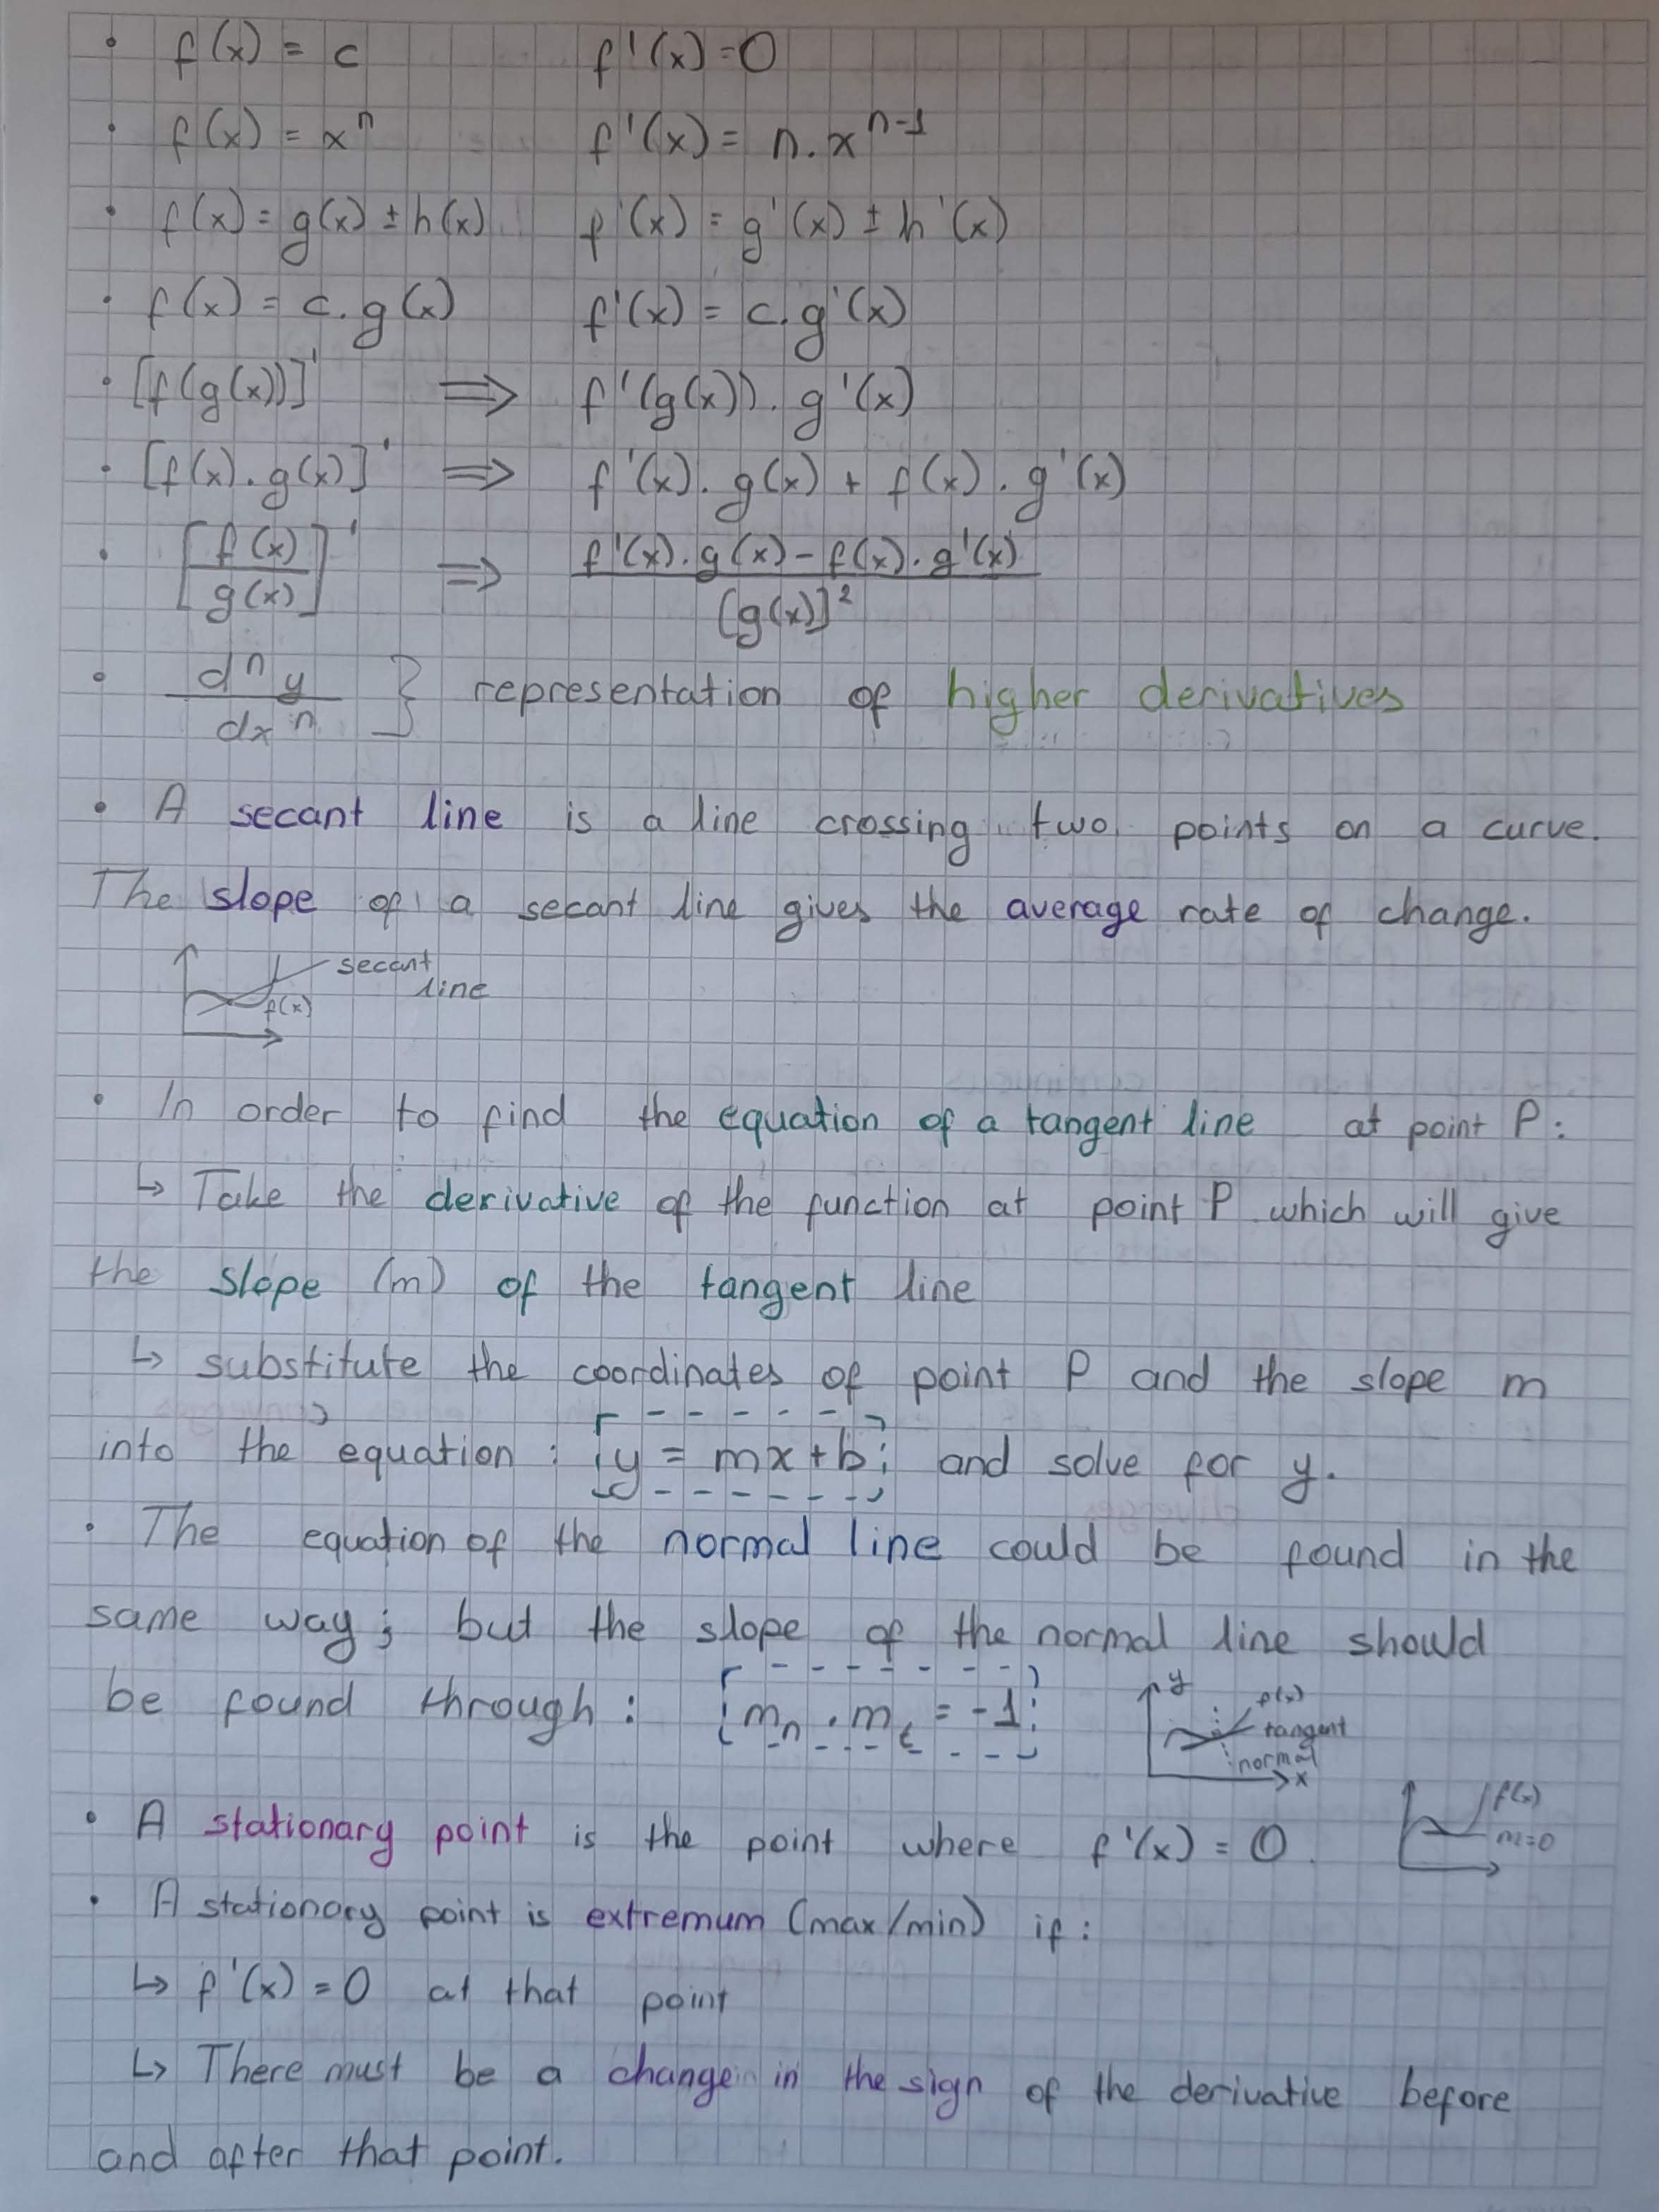 • f(x) = c f'(x) = 0
• f(x) = xⁿ f'(x) = n.xⁿ⁻¹
• f(x) = g(x) ± h(x) f'(x) = g'(x) ± h'(x)
• f(x) = c.g(x) f'(x) = c.g'(x)
• [f(g(x))]' ⇒ f'(g(x)).g'(x)
• [f(x).g(x)]' ⇒ f'(x).g(x) + f(x).g'(x)
• [f(x)/g(x)]' ⇒ f'(x).g(x) - f(x).g'(x) / [g(x)]²
• dⁿy/dxⁿ } representation of higher derivatives
• A secant line is a line crossing two points on a curve.
The slope of a secant line gives the average rate of change.
secant
line
f(x)
• In order to find the equation of a tangent line at point P:
↳ Take the derivative of the function at point P which will give
the slope (m) of the tangent line
↳ substitute the coordinates of point P and the slope m
into the equation : y = mx + b and solve for y.
• The equation of the normal line could be found in the
same way; but the slope of the normal line should
be found through: mₙ . mₜ = -1
y
f(x)
tangent
normal
x
• A stationary point is the point where f'(x) = 0.
f(x)
m=0
• A stationary point is extremum (max/min) if:
↳ f'(x) = 0 at that point
↳ There must be a change in the sign of the derivative before
and after that point.